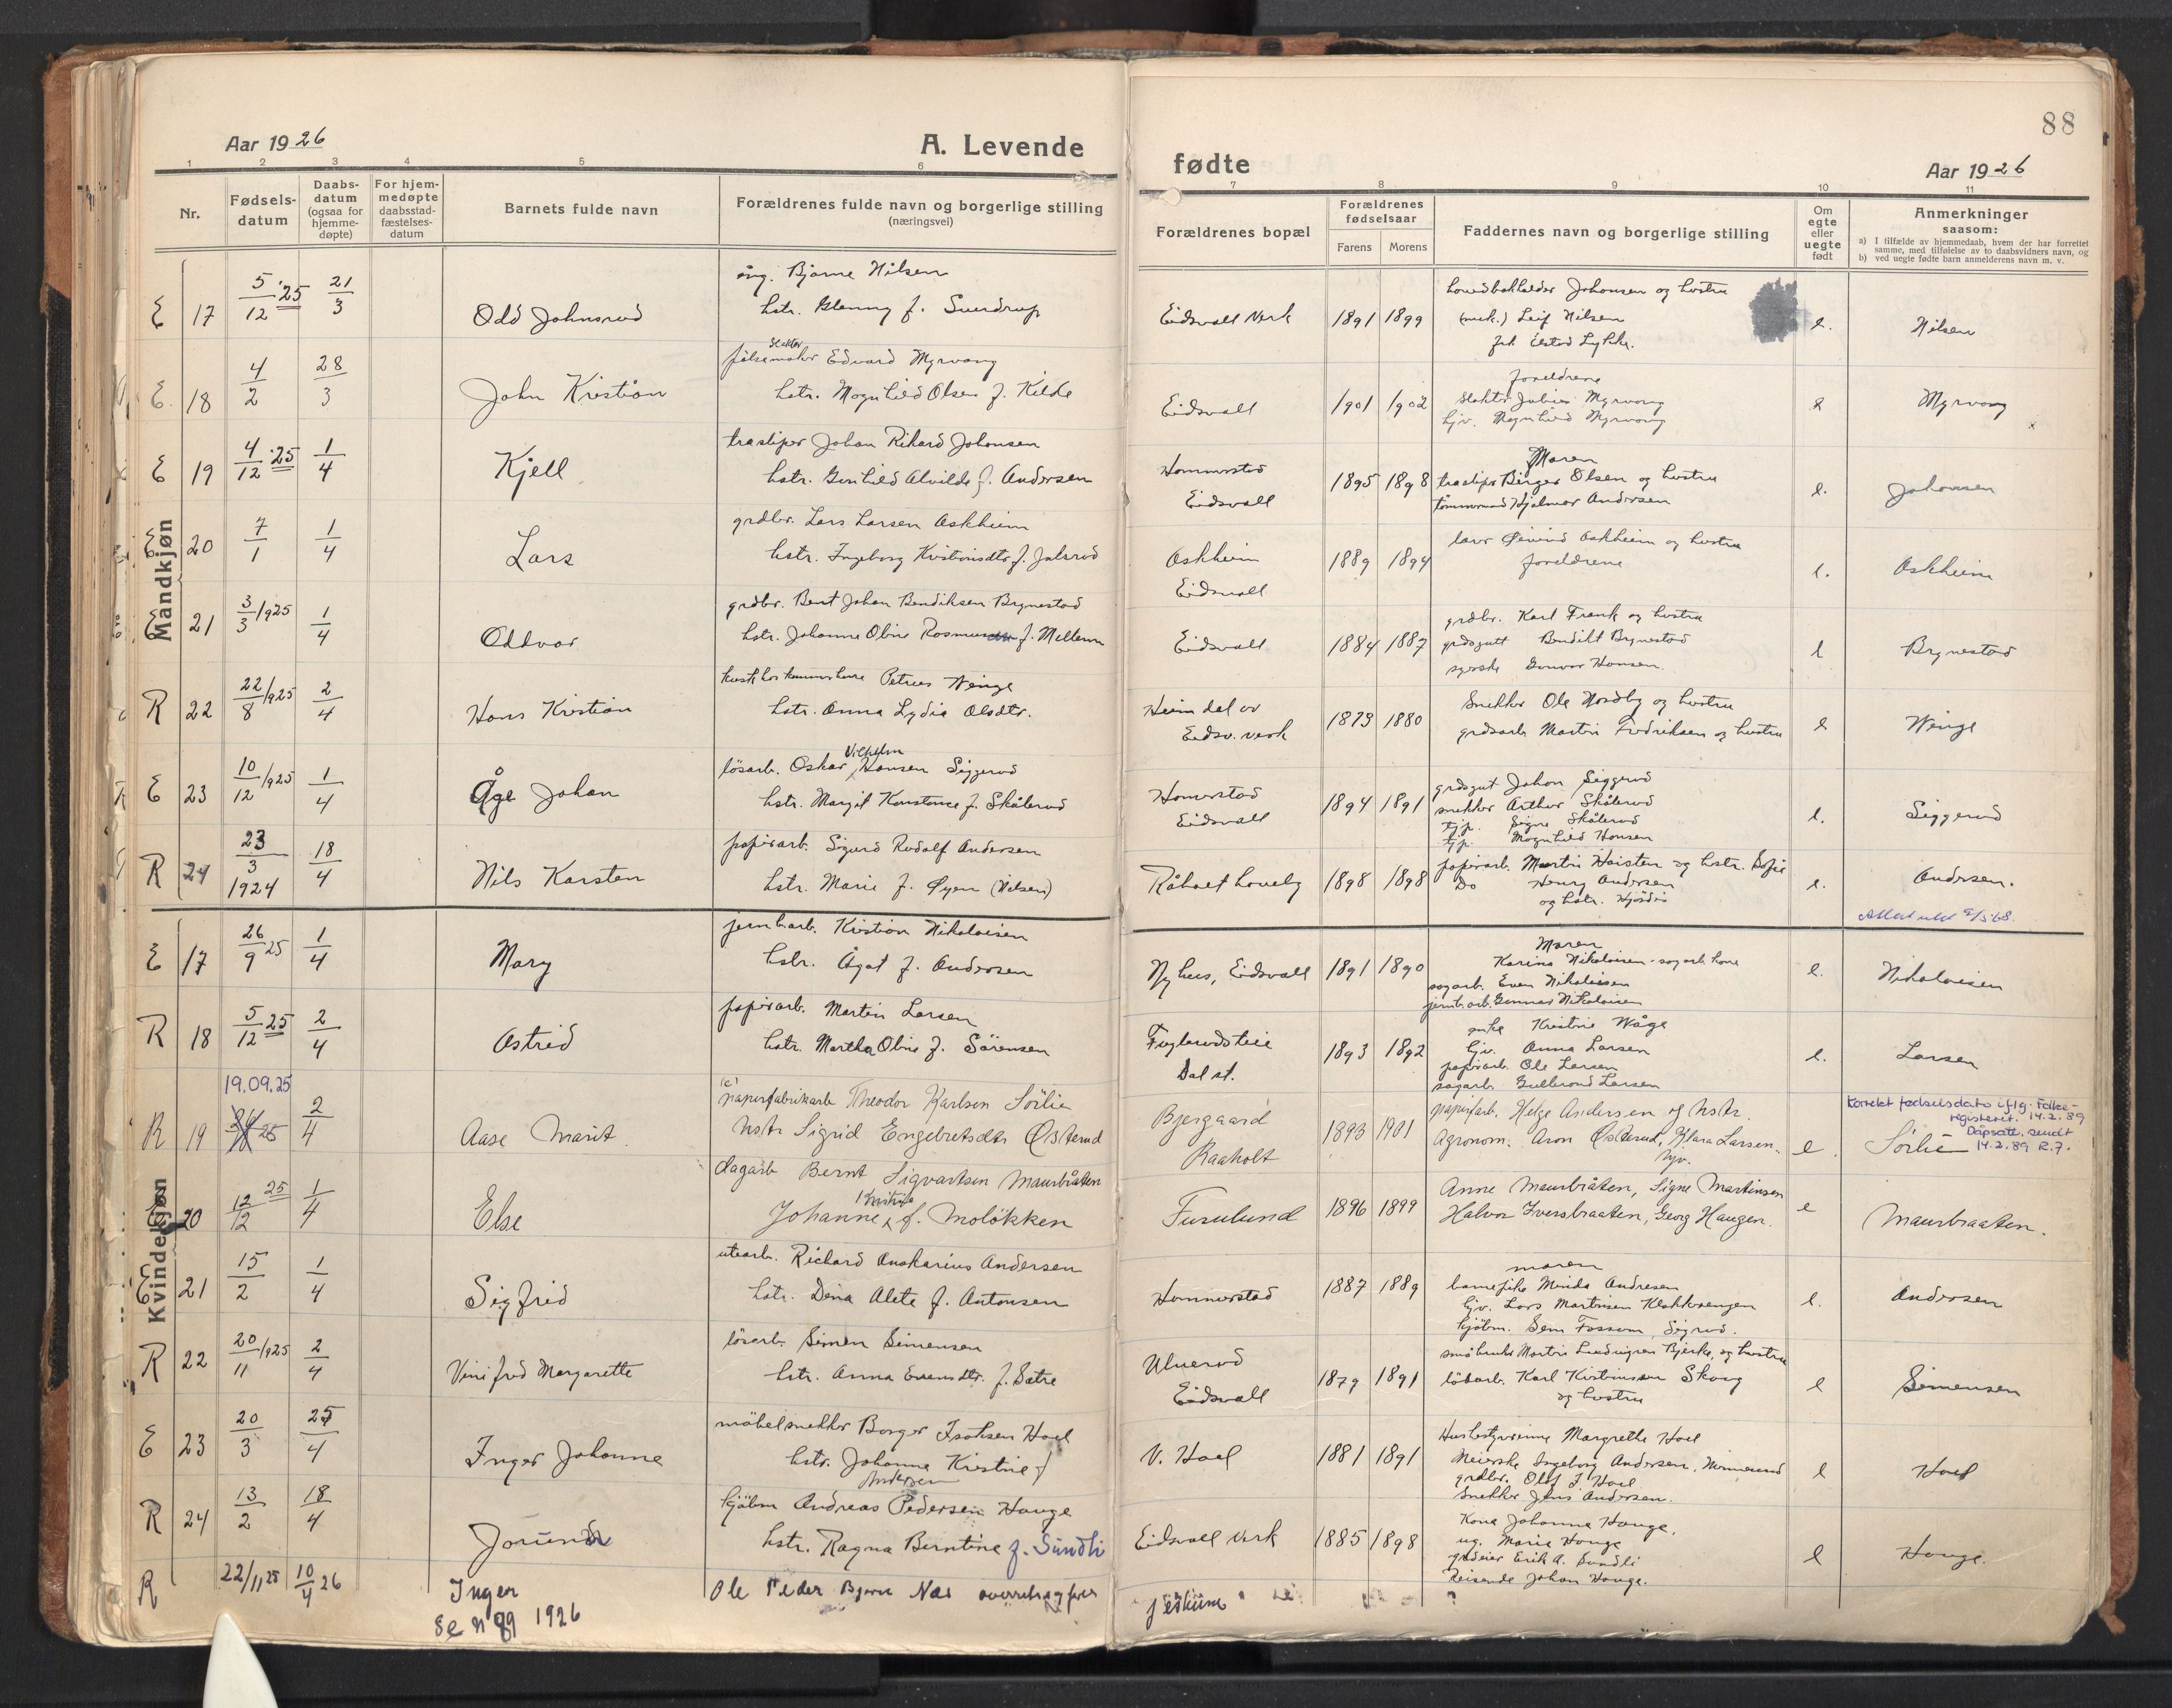 88
Aar 1926
A. Levende
fødte
Aar 1926
1 2 3 4 5 6 7 8 9 10 11
Nr.
Fødsels-
datum
Daabs-
datum
(ogsaa for
hjemme-
døpte)
For hjem-
medøpte
daabsstad-
fæstelses-
datum
Barnets fulde navn
Forældrenes fulde navn og borgerlige stilling
(næringsvei)
Forældrenes bopæl
Forældrenes
fødselsaar
Farens Morens
Faddernes navn og borgerlige stilling
Om
egte
eller
uegte
født
Anmerkninger
saasom:
a) I tilfælde av hjemmedaab, hvem der har forrettet
samme, med tilføielse av to daabsvidners navn, og
b) ved uegte fødte barn anmelderens navn m. v.
Mandkjøn
E 17 5/12 '25 21/3 Odd Johnsrud
ing. Bjarne Nilsen
hstr. Glenny f. Sverdrup
Eidsvoll Verk 1891 1899
hovedbokholder Johansen og hustru
(mek.) Leif Nilsen
e. Nilsen
E. 18 4/2 28/3 John Kristian
slakter
pølsemaker Edvard Myrvang
hstr. Magnhild Olsen f. Kilde
Eidsvoll 1901 1902
foreldrene
slakter Julius Myrvang
hjv. Magnhild Myrvang
e Myrvang
E 19 4/12 '25 1/4 Kjell
trasliper Johan Rikard Johansen
hstr. Gunhild Alvilde f. Andersen
Hommerstad
Eidsvoll
1895 1898
Moren
trasliper Birger Olsen og hustru
tømmermand Hjalmar Andersen
e. Johansen
E 20 7/1 1/4 Lars
grdbr. Lars Larsen Askheim
hstr. Ingeborg Kristiansdtr f. Julsrud
Askheim
Eidsvoll
1889 1894
lærer Øivind Askheim og hustru
foreldrene
e. Askheim
E 21 3/3 1925 1/4 Oddvar
grdbr. Bent Johan Bendiksen Brynestad
hstr. Johanne Oline Rasmussen f. Mellem
Eidsvoll 1884 1887
grdbr. Karl Frank og hustru
grdsgutt Bendikt Brynestad
syerske Gunvor Hansen
e Brynestad
R 22 22/8 1925 2/4 Hans Kristian
Petrus Winge
hstr. Anna Lydia Olsdtr.
Heimdal v
Eidsv. verk
1873 1880
Snekker Ole Nordby og hustru
grdsarb. Martin Fredriksen og hustru
e Winge
E 23 10/12 1925 1/4 Åge Johan
Vilhelm
løsarb. Oskar Hansen Siggerud
hstr. Margit Konstance f. Skålerud
Homerstad
Eidsvoll
1894 1891
grdsgut Johan Siggerud
snekker Arthur Skålerud
tjp. Signe Skålerud
tjp. Magnhild Hansen
e. Siggerud
R 24 23/3 1924 18/4 Nils Karsten
papirarb. Sigurd Rudolf Andersen
hstr. Marie f. Øyen (Nilsen)
Råholt 1898 1898
papirarb. Martin Haisten og hstr. Sofie
Do Henry Andersen
og hstr. Hjørdis
e. Andersen.
Kvindekjøn
E 17 26/9 25 1/4 Mary
jernbarb. Kristian Nikolaisen
hstr. Ågot f. Andersen
Nyhus, Eidsvoll 1891 1890
Moren
Karina Nikolaisen
sagarb. Even Nikolaisen
jernb. arb. Gunnar Nikolaisen
e. Nikolaisen
R 18 5/12 25 2/4 Astrid
papirarb. Martin Larsen
hstr. Martha Oline f. Sørensen
Fuglerudsteie
Dal st.
1893 1892
enke Kristine Wåge
hjv. Anna Larsen
papirarb. Ole Larsen
sagarb. Gulbrand Larsen
e. Larsen
19.09.25
R 19 25 2/4 Aase Marit
papirfabrikarb Theodor Karlsen Sørlie
hstr Sigrid Engebretsdtr Østerud
Bjergaard
Raaholt
1893 1901
papirfarb. Helge Andersen og hstr.
Agronom. Aron Østerud, Klara Larsen
hjv.
e. Sørlie
Korrekt fødselsdato iflg. Folke-
registeret. 14.2.89
Dåpsatt. sendt
14.2.89 R.F.
E 20 12/12 25 1/4 Else
dagarb Bernt Sigvartsen Maurbråten
Kristine
Johanne f. Moløkken
Furulund 1896 1899
Anne Maurbråten, Signe Martinsen
Halvor Iversbraaten, Georg Haugen.
e Maurbraaten.
E 21 15/2 1/4 Sigfrid
utearb. Richard Anskarius Andersen
hstr. Dina Alete f. Antonsen
Hommerstad 1887 1889
moren
barnepike Minda Andresen
hjv. Lars Martinsen Klokkerengen
kjøbm. Sem Fossum, Sigrud.
e. Andersen
R 22 20/11 1925 2/4 Vinifred Margarette
løsarb. Simen Simensen
hstr. Anna Evensdtr. f. Sætre
Ulverud
Eidsvoll
1879 1891
småbruker Martin Ludvigsen Bjerke, og hustru
løsarb. Karl Kristiansen Skaug
og hustru
e Simensen
E 23 20/3 25/4 Inger Johanne
møbelsnekker Borger Isaksen Hoel
hstr. Johanne Kristine f
Andersen
V. Hoel 1881 1891
Husbestyrerinne Margrethe Hoel
Meierske Ingeborg Andersen, Minnesund
grdbr. Olaf I. Hoel
Snekker Jens Andersen.
e Hoel
R 24 13/2 18/4 Jorunn
kjøbm Andreas Pedersen Hauge
hstr. Ragna Berntine f. Sundli
Eidsvoll Verk 1885 1898
Kona Johanna Hauge,
ug. Marie Hauge
grdeier Erik A. Sundli
Reisende Johan Hauge.
e Hauge.
R 22/11 25 10/4 26 Inger
Ole Peder Bjarne Næs overretssagfører
Jessheim
Se n 89 1926